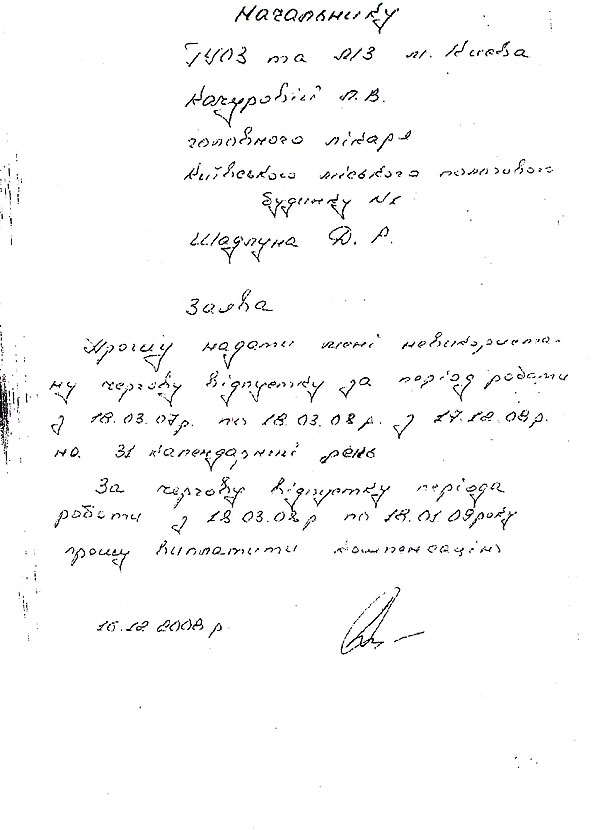 Начальнику
ГУОЗ та МЗ м. Києва
Качуровій Л.В.
головного лікаря
Київського міського пологового
будинку №1
Шадлуна Д. Р.
Заява
Прошу надати мені невикориста-
ну чергову відпустку за період роботи
з 18.03.07р. по 18.03.08р. з 17.12.08р.
на 31 календарний день
За чергову відпустку періода
роботи з 18 03.08р по 18.01 09року
прошу виплатити компенсацію
16.12 2008 р